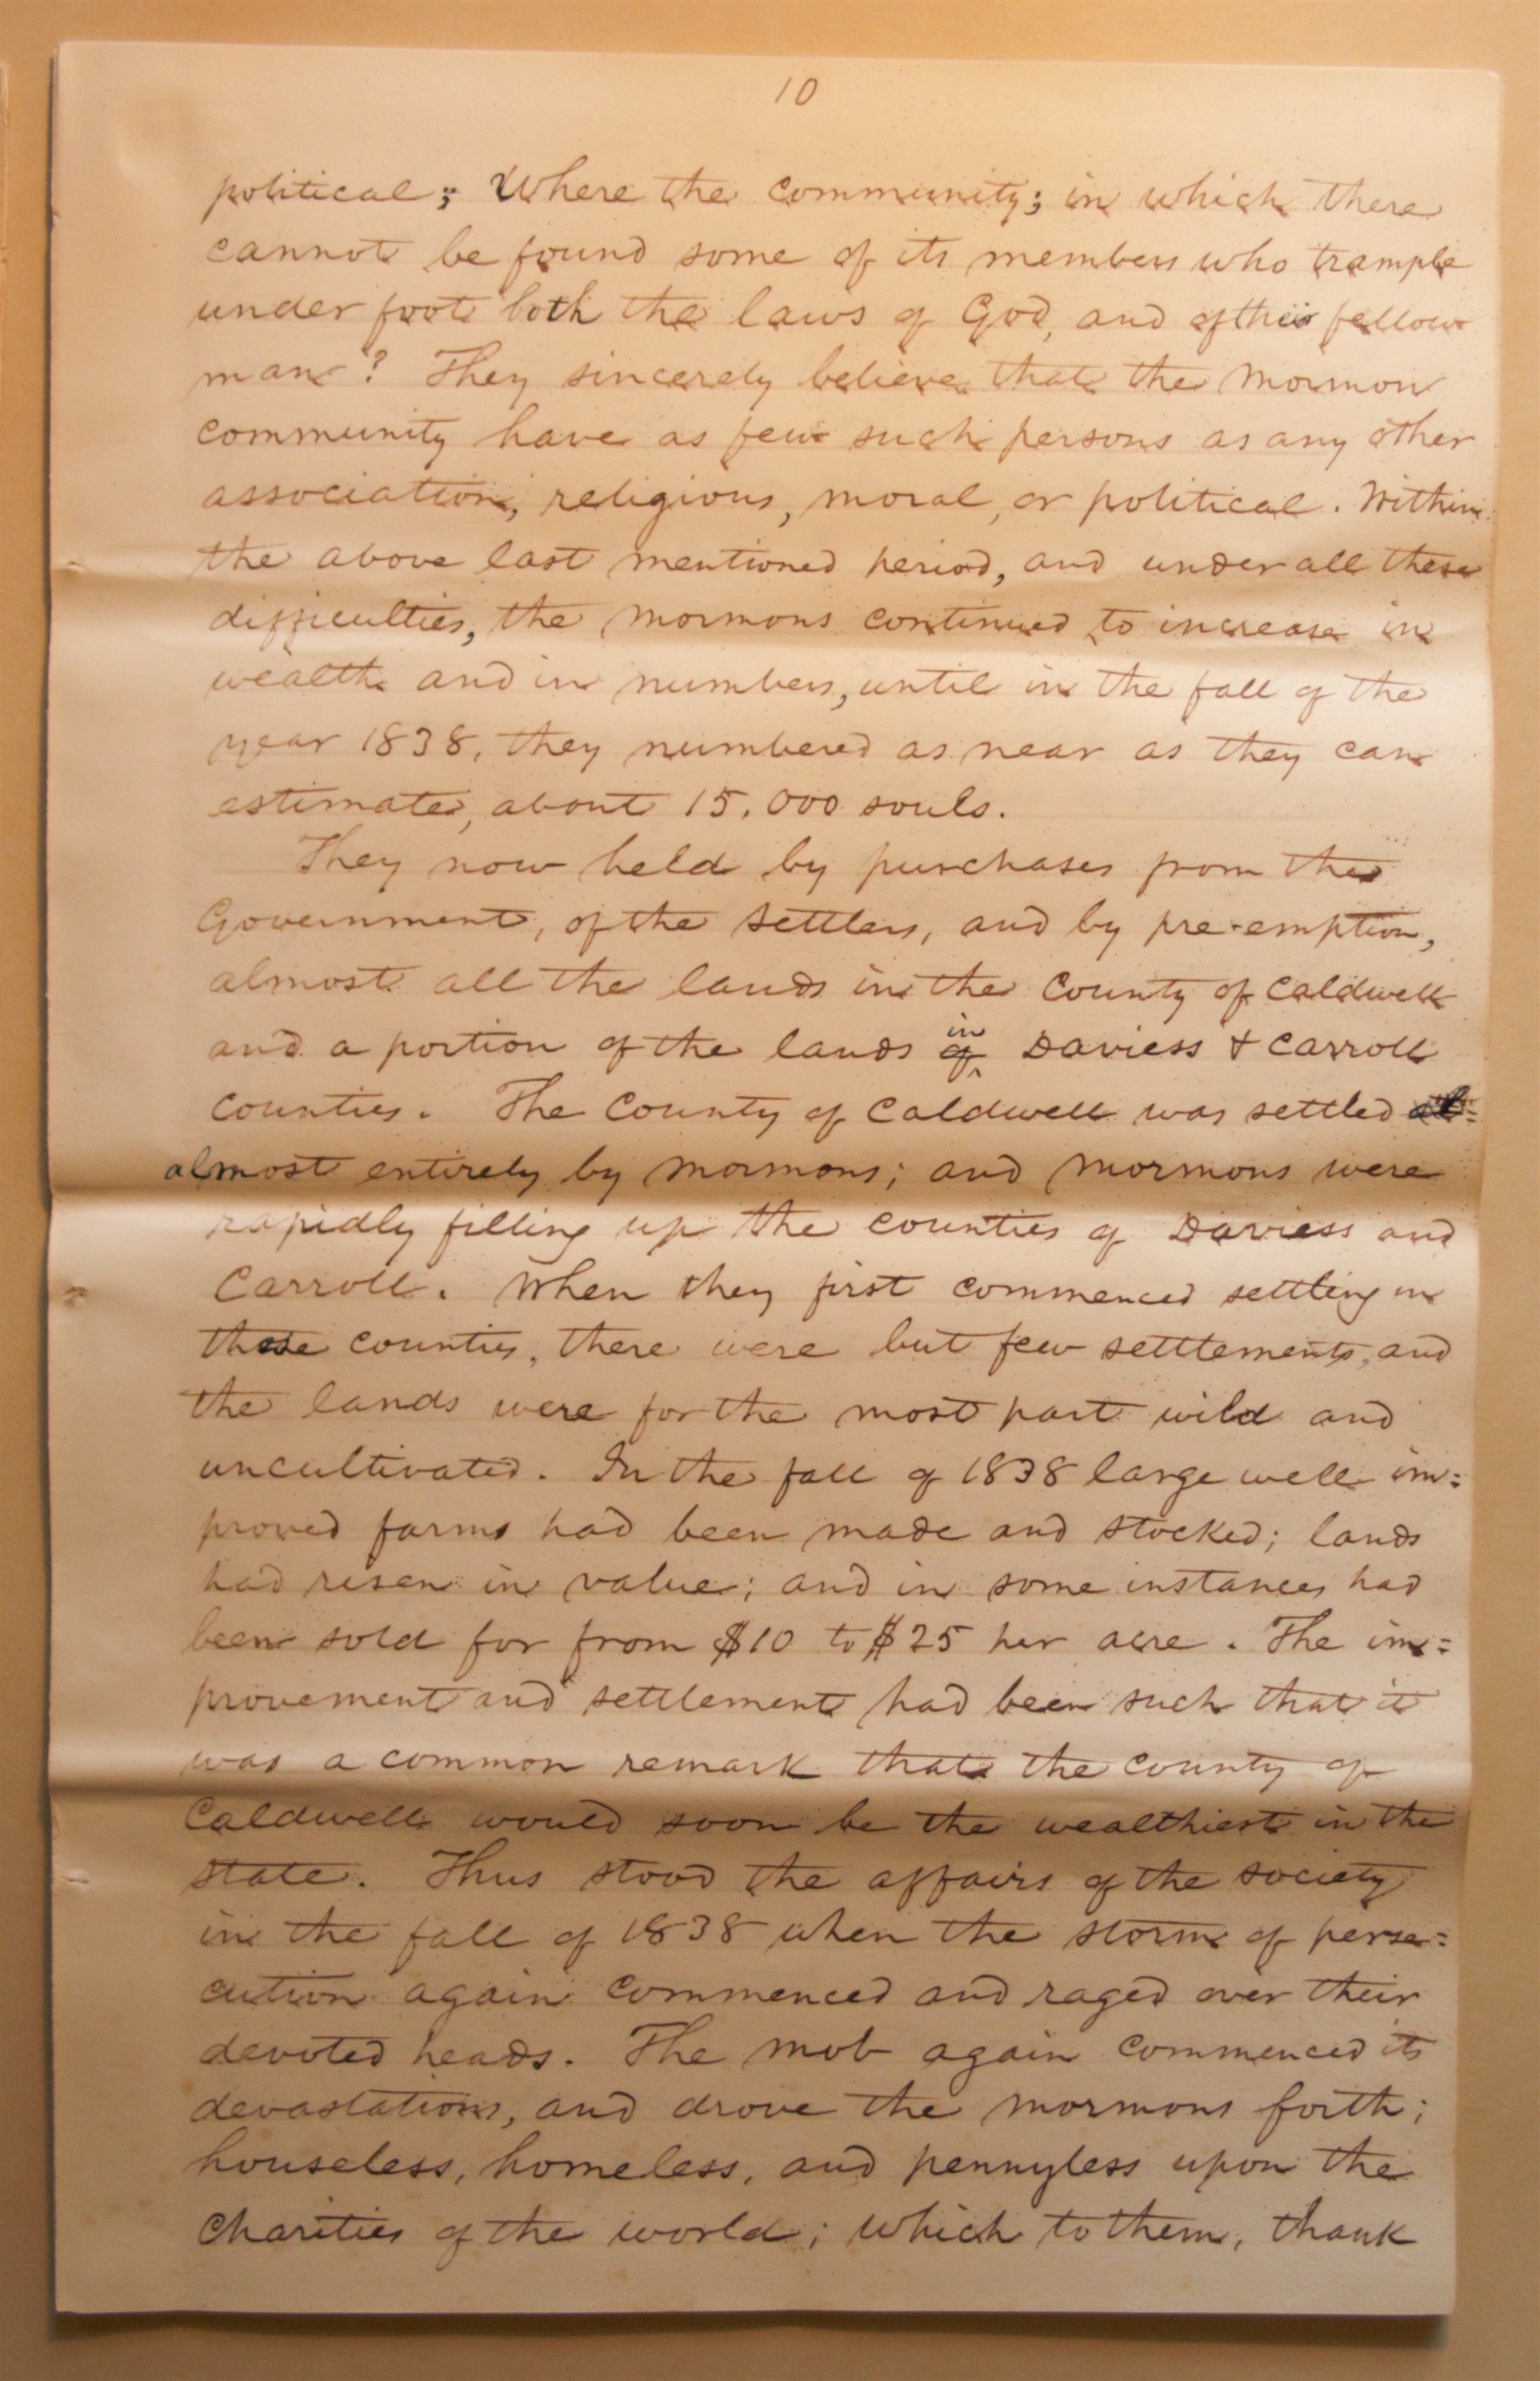 10
political; Where the community; in which there
cannot be found some of its members who trample
under foot both the laws of God, and of their fellow
man? They sincerely believe that the Mormon
community have as few such persons as any other
association, religious, moral, or political. Within
the above last mentioned period, and under all these
difficulties, the Mormons continued to increase in
wealth and in numbers, until in the fall of the
year 1838, they numbered as near as they can
estimate, about 15,000 souls.
They now held by purchases from the
Government, of the settlers, and by pre-emption,
almost all the lands in the County of Caldwell
and a portion of the lands of in Daviess & Carroll
Counties. The County of Caldwell was settled al=
almost entirely by Mormons; and Mormons were
rapidly filling up the counties of Daviess and
Carroll. When they first commenced settling in
those counties, there were but few settlements, and
the lands were for the most part wild and
uncultivated. In the fall of 1838 large well im=
proved farms had been made and stocked; lands
had risen in value; and in some instances had
been sold for from $10 to $25 per acre. The im=
provement and settlement had been such that it
was a common remark that the County of
Caldwell would soon be the wealthiest in the
State. Thus stood the affairs of the society
in the fall of 1838 when the storm of perse=
cution again commenced and raged over their
devoted heads. The mob again commenced its
devastations, and drove the Mormons forth;
houseless, homeless, and pennyless upon the
Charities of the world; which to them, thank